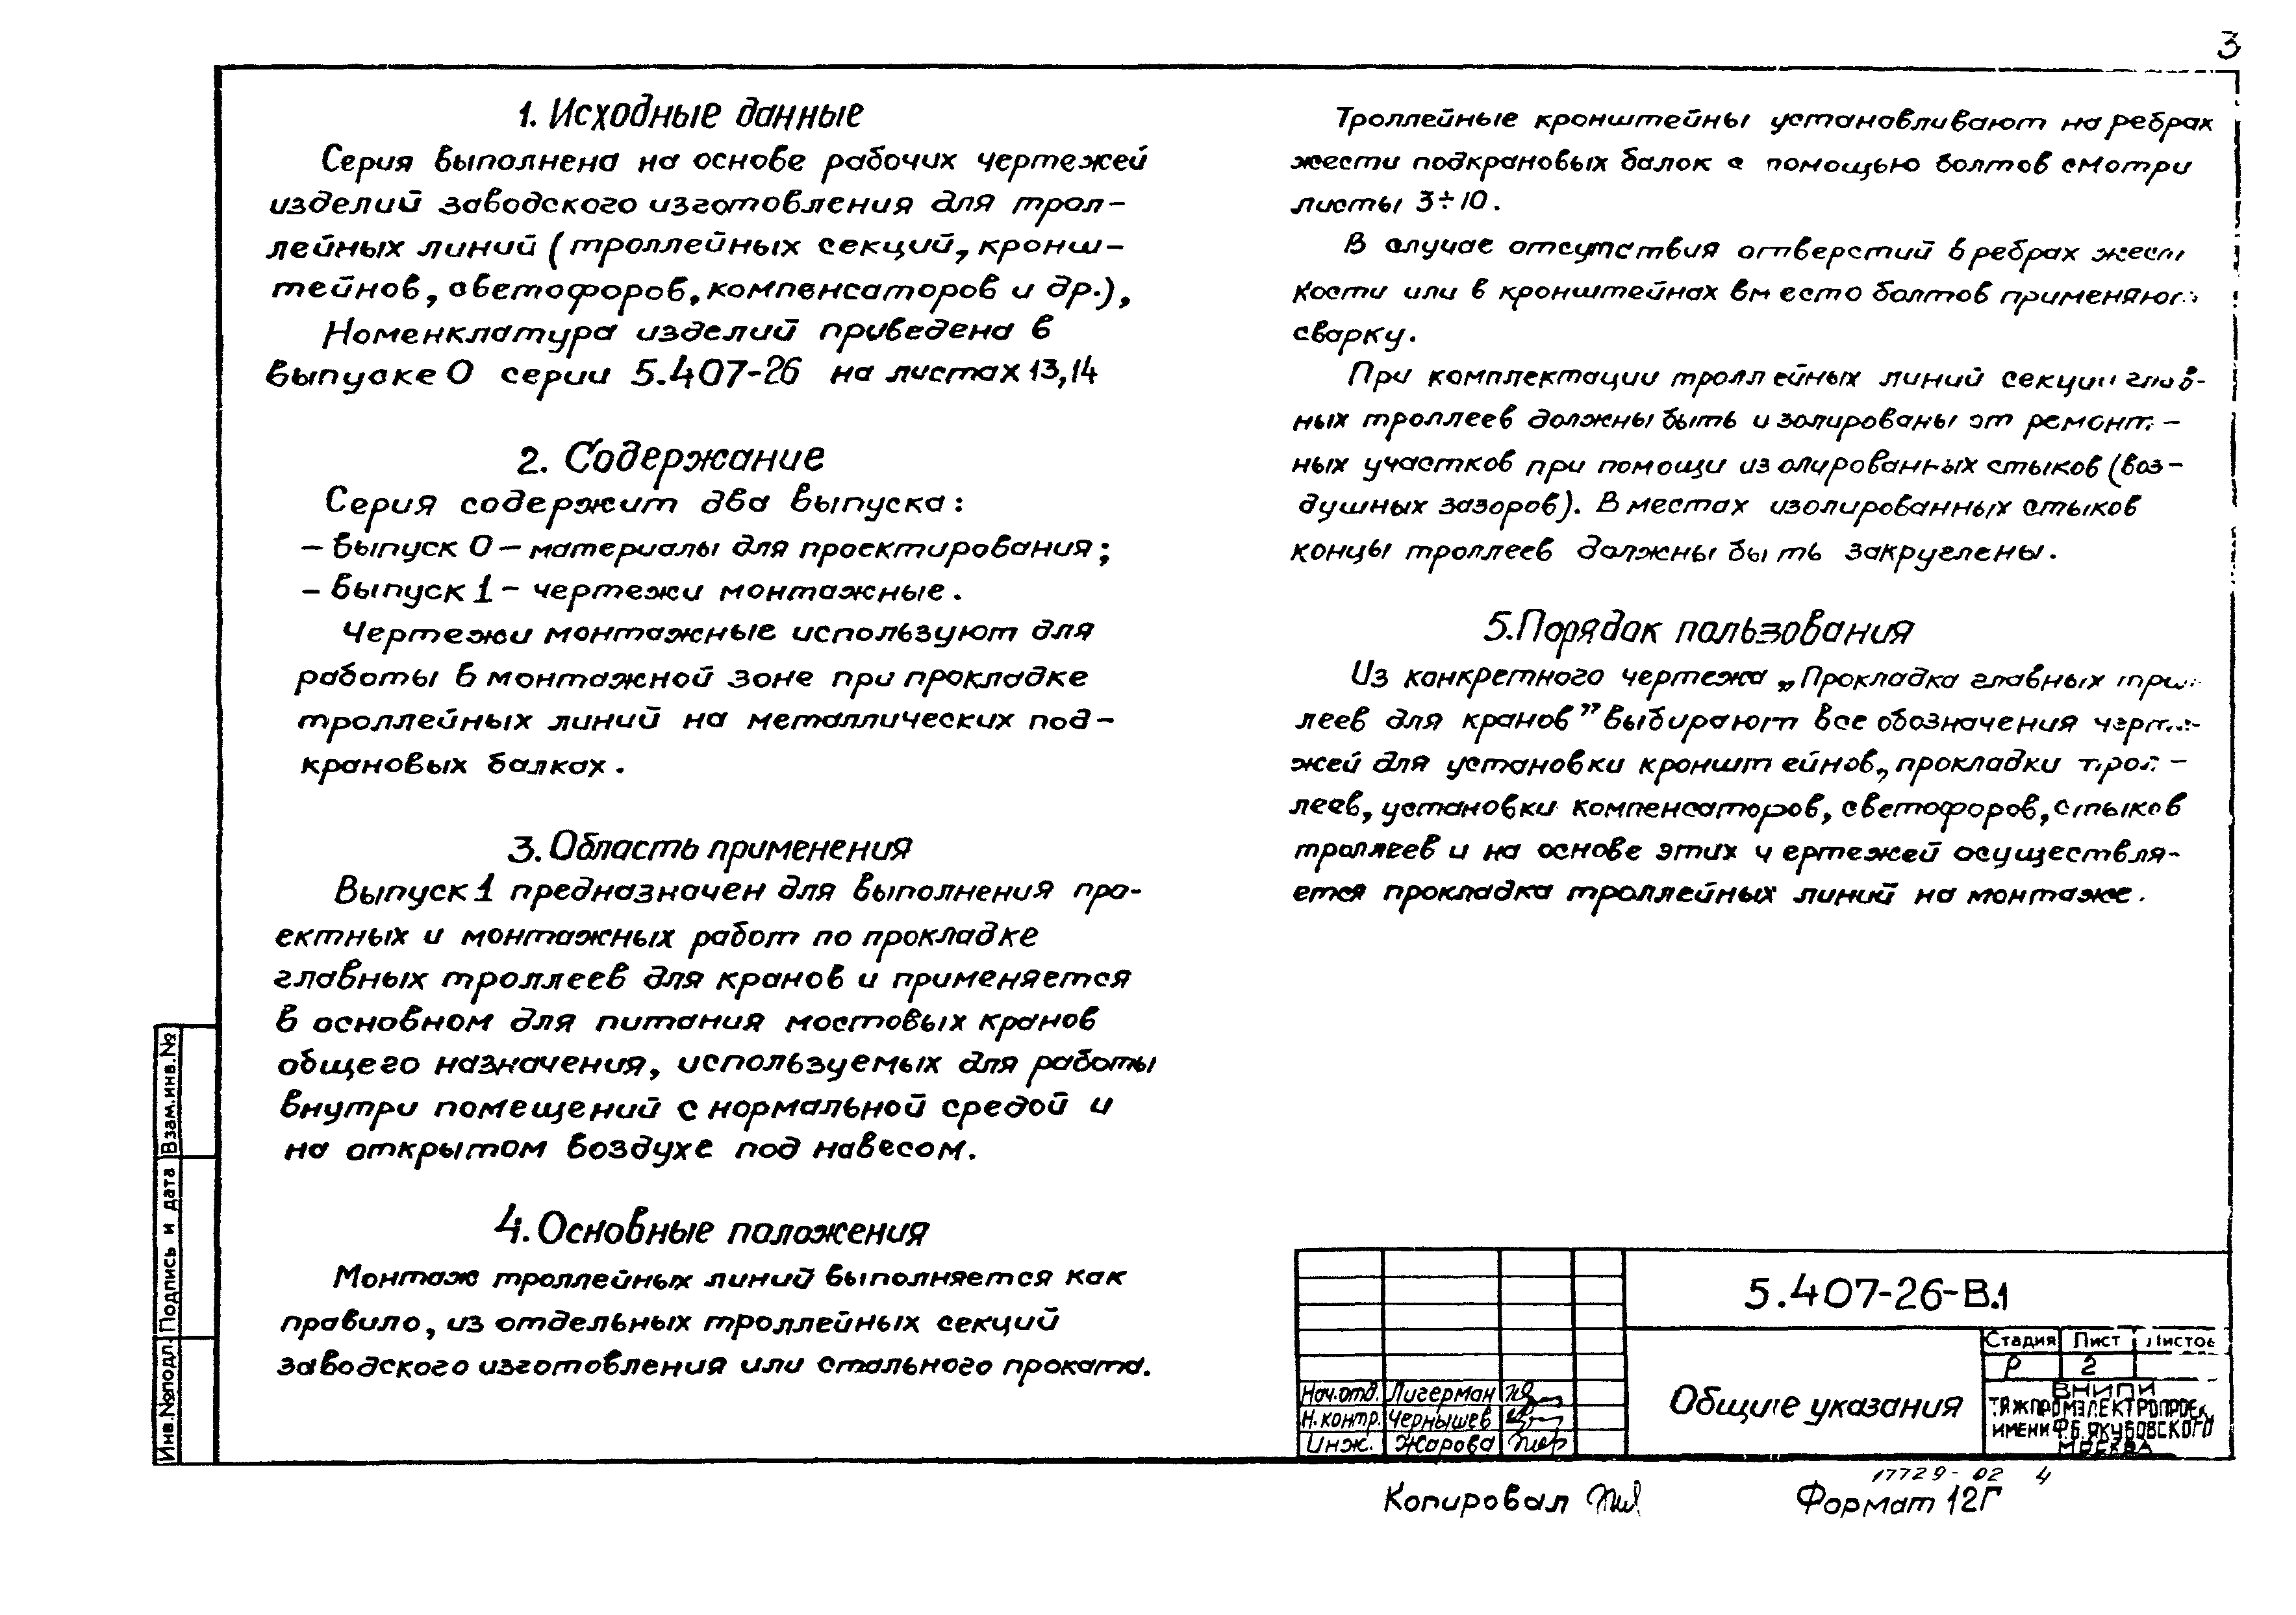 3
1. Исходные данные
Серия выполнена на основе рабочих чертежей
изделий заводского изготовления для трол-
лейных линий (троллейных секций, кронш-
тейнов, светофоров, компенсаторов и др.),
Номенклатура изделий приведена в
выпуске 0 серии 5.407-26 на листах 13,14
2. Содержание
Серия содержит два выпуска:
- выпуск 0 - материалы для проектирования;
- выпуск 1 - чертежи монтажные.
Чертежи монтажные используют для
работы в монтажной зоне при прокладке
троллейных линий на металлических под-
крановых балках.
3. Область применения
Выпуск 1 предназначен для выполнения про-
ектных и монтажных работ по прокладке
главных троллеев для кранов и применяется
в основном для питания мостовых кранов
общего назначения, используемых для работы
внутри помещений с нормальной средой и
на открытом воздухе под навесом.
4. Основные положения
Монтаж троллейных линий выполняется как
правило, из отдельных троллейных секций
заводского изготовления или стального проката.
Троллейные кронштейны устанавливают на ребрах
жести подкрановых балок с помощью болтов смотри
листы 3÷10.
В случае отсутствия отверстий в ребрах жест
кости или в кронштейнах вместо болтов применяют
сварку.
При комплектации троллейных линий секции глав-
ных троллеев должны быть изолированы от ремонт-
ных участков при помощи изолированных стыков (воз-
душных зазоров). В местах изолированных стыков
концы троллеев должны быть закруглены.
5. Порядок пользования
Из конкретного чертежа „Прокладка главных трол-
леев для кранов” выбирают все обозначения черте-
жей для установки кронштейнов, прокладки трол-
леев, установки компенсаторов, светофоров, стыков
троллеев и на основе этих чертежей осуществля-
ется прокладка троллейных линий на монтаже.
Взам.инв.№
Подпись и дата
Инв.№подл.
5.407-26-В.1
Стадия Лист Листов
Р 2
Общие указания
ВНИПИ
ТЯЖПРОМЭЛЕКТРОПРОЕК
ИМЕНИ Ф.Б.ЯКУБОВСКОГО
МОСКВА
Нач.отд. Лигерман
Н.контр. Чернышев
Инж. Жарова
17729-02 4
Копировал
Формат 12Г